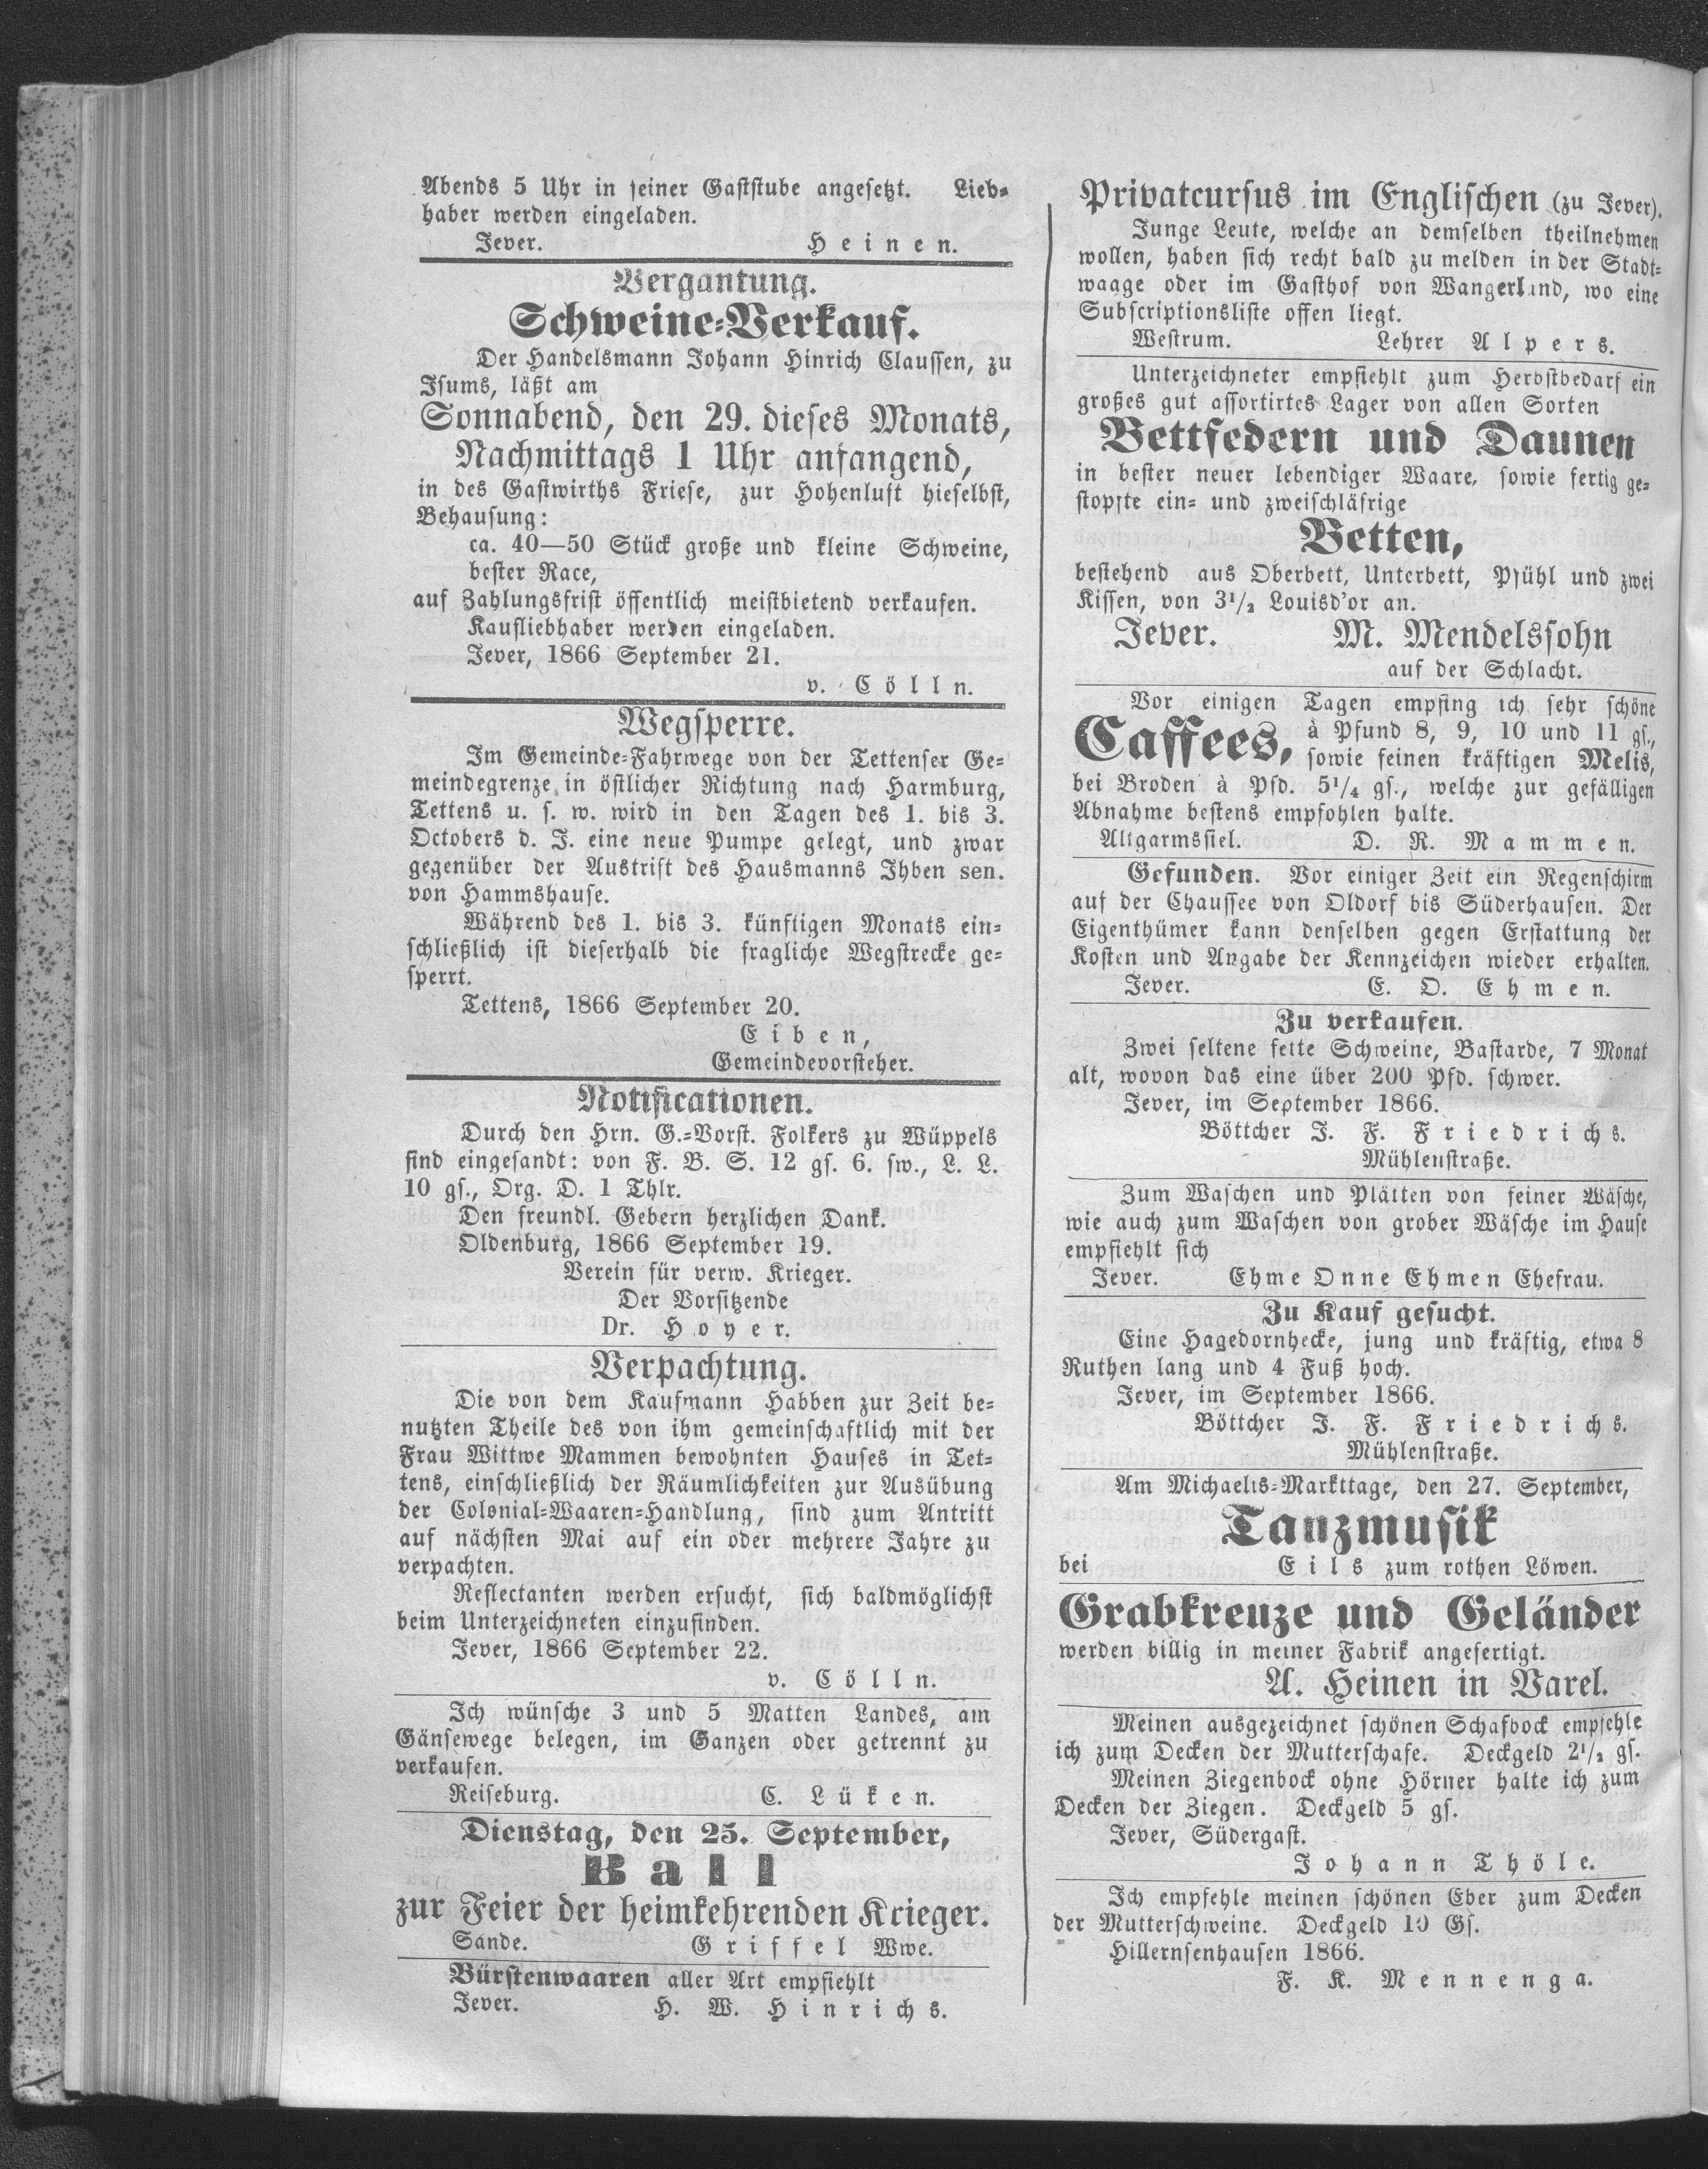 Abends 5 Uhr in seiner Gaststube angesetzt. Lieb-
haber werden eingeladen.
Jever. Heinen.
Vergantung.
Schweine-Verkauf.
Der Handelsmann Johann Hinrich Claussen, zu
Isums, läßt am
Sonnabend, den 29. dieses Monats,
Nachmittags 1 Uhr anfangend,
in des Gastwirths Friese, zur Hohenlust hieselbst,
Behausung:
ca. 40—50 Stück große und kleine Schweine,
bester Race,
auf Zahlungsfrist öffentlich meistbietend verkaufen.
Kaufliebhaber werden eingeladen.
Jever, 1866 September 21.
v. Cölln.
Wegsperre.
Im Gemeinde-Fahrwege von der Tettenser Ge-
meindegrenze in östlicher Richtung nach Harmburg,
Tettens u. s. w. wird in den Tagen des 1. bis 3.
Octobers d. J. eine neue Pumpe gelegt, und zwar
gegenüber der Austrift des Hausmanns Ihben sen.
von Hammshause.
Während des 1. bis 3. künftigen Monats ein-
schließlich ist dieserhalb die fragliche Wegstrecke ge-
sperrt.
Tettens, 1866 September 20.
Eiben,
Gemeindevorsteher.
Notificationen.
Durch den Hrn. G.-Vorst. Folkers zu Wüppels
sind eingesandt: von F. B. S. 12 gs. 6. sw., L. L.
10 gs., Org. D. 1 Thlr.
Den freundl. Gebern herzlichen Dank.
Oldenburg, 1866 September 19.
Verein für verw. Krieger.
Der Vorsitzende
Dr. Hoyer.
Verpachtung.
Die von dem Kaufmann Habben zur Zeit be-
nutzten Theile des von ihm gemeinschaftlich mit der
Frau Wittwe Mammen bewohnten Hauses in Tet-
tens, einschließlich der Räumlichkeiten zur Ausübung
der Colonial-Waaren-Handlung, sind zum Antritt
auf nächsten Mai auf ein oder mehrere Jahre zu
verpachten.
Reflectanten werden ersucht, sich baldmöglichst
beim Unterzeichneten einzufinden.
Jever, 1866 September 22.
v. Cölln.
Ich wünsche 3 und 5 Matten Landes, am
Gänsewege belegen, im Ganzen oder getrennt zu
verkaufen.
Reiseburg. C. Lüken.
Dienstag, den 25. September,
Ball
zur Feier der heimkehrenden Krieger.
Sande. Griffel Wwe.
Bürstenwaaren aller Art empfiehlt
Jever. H. W. Hinrichs.
Privatcursus im Englischen (zu Jever).
Junge Leute, welche an demselben theilnehmen
wollen, haben sich recht bald zu melden in der Stadt-
waage oder im Gasthof von Wangerland, wo eine
Subscriptionsliste offen liegt.
Westrum. Lehrer Alpers.
Unterzeichneter empfiehlt zum Herbstbedarf ein
großes gut assortirtes Lager von allen Sorten
Bettfedern und Daunen
in bester neuer lebendiger Waare, sowie fertig ge-
stopfte ein- und zweischläfrige
Betten,
bestehend aus Oberbett, Unterbett, Pfühl und zwei
Kissen, von 3¹/₂ Louisd'or an.
Jever. M. Mendelssohn
auf der Schlacht.
Vor einigen Tagen empfing ich sehr schöne
Caffees, à Pfund 8, 9, 10 und 11 gs.,
sowie feinen kräftigen Melis,
bei Broden à Pfd. 5¹/₄ gs., welche zur gefälligen
Abnahme bestens empfohlen halte.
Altgarmssiel. D. R. Mammen.
Gefunden. Vor einiger Zeit ein Regenschirm
auf der Chaussee von Oldorf bis Süderhausen. Der
Eigenthümer kann denselben gegen Erstattung der
Kosten und Angabe der Kennzeichen wieder erhalten.
Jever. E. O. Ehmen.
Zu verkaufen.
Zwei seltene fette Schweine, Bastarde, 7 Monat
alt, wovon das eine über 200 Pfd. schwer.
Jever, im September 1866.
Böttcher J. F. Friedrichs.
Mühlenstraße.
Zum Waschen und Plätten von feiner Wäsche,
wie auch zum Waschen von grober Wäsche im Hause
empfiehlt sich
Jever. Ehme Onne Ehmen Ehefrau.
Zu Kauf gesucht.
Eine Hagedornhecke, jung und kräftig, etwa 8
Ruthen lang und 4 Fuß hoch.
Jever, im September 1866.
Böttcher J. F. Friedrichs.
Mühlenstraße.
Am Michaelis-Markttage, den 27. September,
Tanzmusik
bei Eils zum rothen Löwen.
Grabkreuze und Geländer
werden billig in meiner Fabrik angefertigt.
A. Heinen in Varel.
Meinen ausgezeichnet schönen Schafbock empfehle
ich zum Decken der Mutterschafe. Deckgeld 2¹/₂ gs.
Meinen Ziegenbock ohne Hörner halte ich zum
Decken der Ziegen. Deckgeld 5 gs.
Jever, Südergast.
Johann Thöle.
Ich empfehle meinen schönen Eber zum Decken
der Mutterschweine. Deckgeld 10 Gs.
Hillernsenhausen 1866.
F. K. Mennenga.